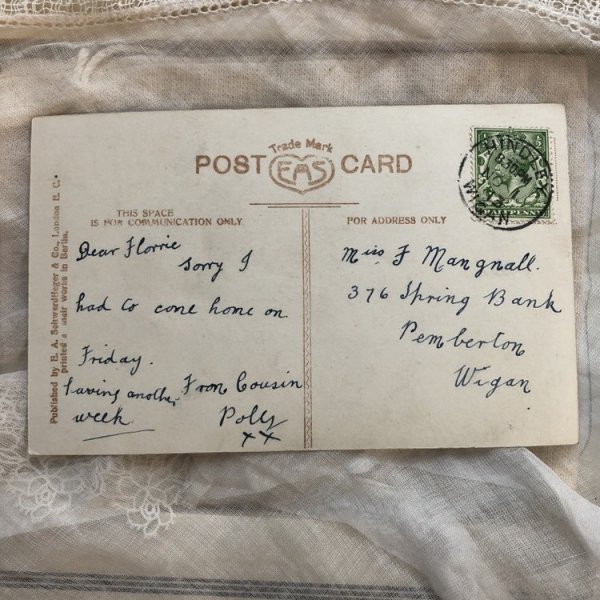 Trade Mark
POST EAS CARD
THIS SPACE
IS FOR COMMUNICATION ONLY
FOR ADDRESS ONLY
Published by H. A. Schwerdtfeger & Co., London E. C.
printed a their works in Berlin.
Dear Florrie
sorry I
had to come home on
Friday.
having another
week.
From Cousin
Poly
xx
Miss F Mangnall.
376 Spring Bank
Pemberton
Wigan
HINDLEY
WIGAN
PENNY